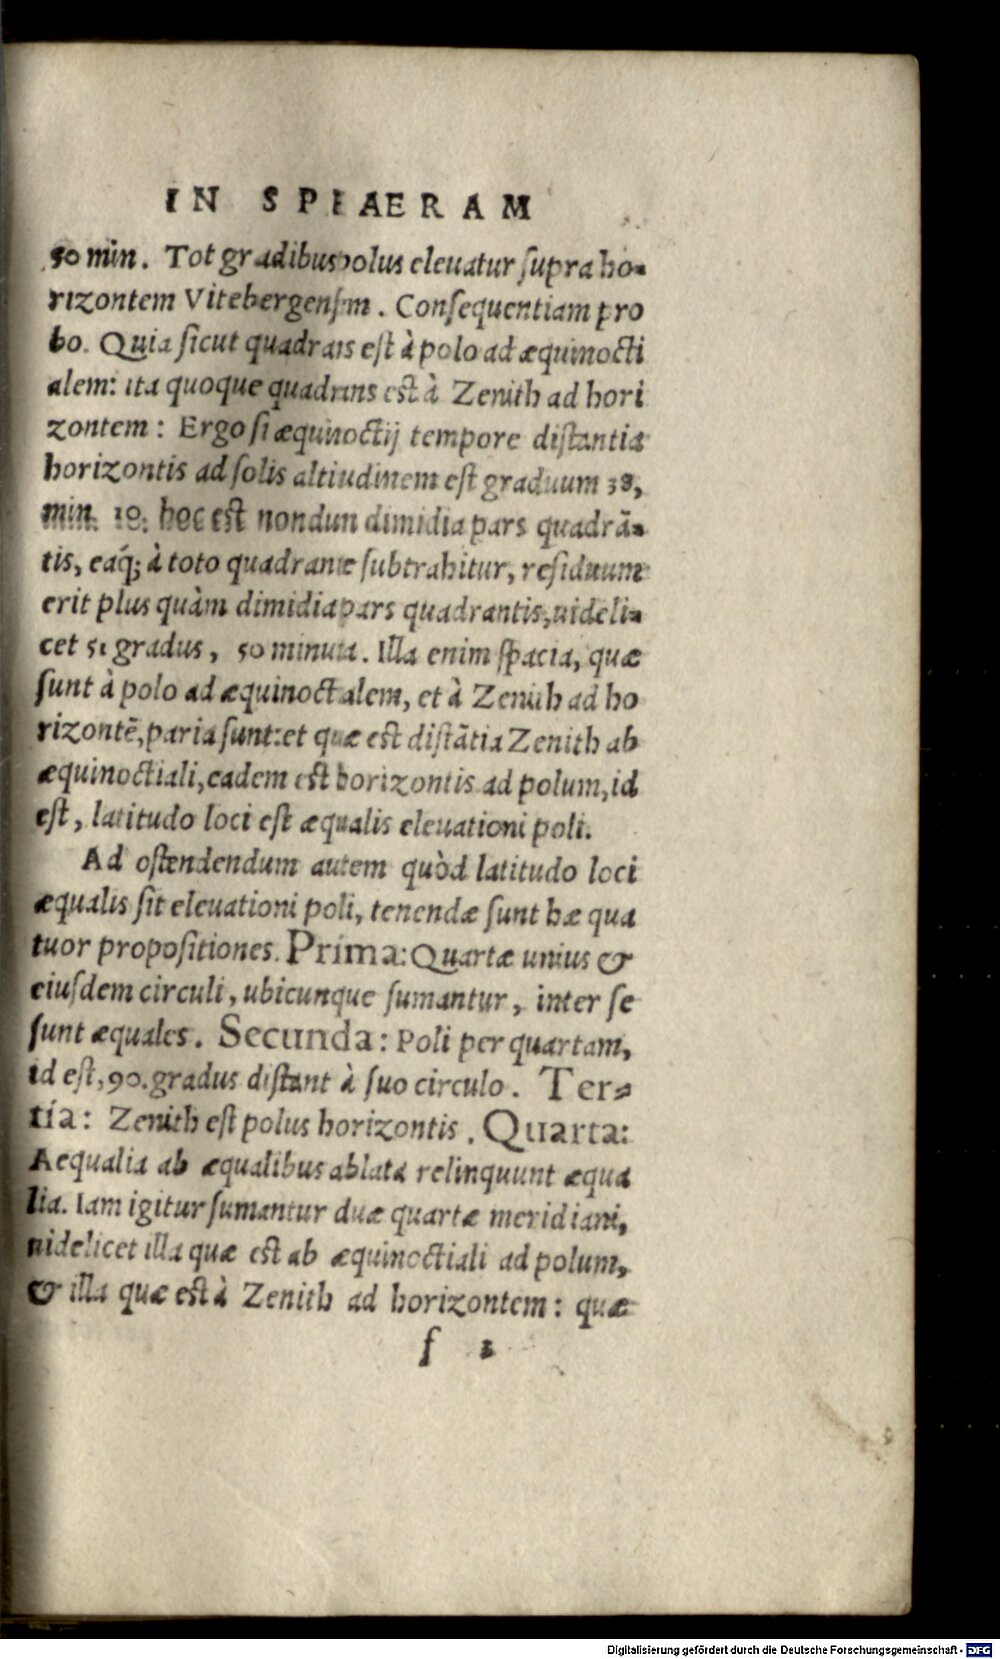 IN SPHAERAM
50 min. Tot gradibus polus eleuatur supra ho-
rizontem Vitebergensem. Consequentiam pro
bo. Quia sicut quadrans est à polo ad æquinocti
alem: ita quoque quadrans est à Zenith ad hori
zontem: Ergo si æquinoctij tempore distantia
horizontis ad solis altitudinem est graduum 38,
min. 10. hoc est nondum dimidia pars quadrā-
tis, eaq́; à toto quadrante subtrahitur, residuum
erit plus quàm dimidia pars quadrantis, uideli-
cet 51 gradus, 50 minuta. Illa enim spacia, quæ
sunt à polo ad æquinoctialem, et à Zenith ad ho
rizontē, paria sunt: et quæ est distātia Zenith ab
æquinoctiali, eadem est horizontis ad polum, id
est, latitudo loci est æqualis eleuationi poli.
Ad ostendendum autem quòd latitudo loci
æqualis sit eleuationi poli, tenendæ sunt hæ qua
tuor propositiones. Prima: Quartæ unius &
eiusdem circuli, ubicunque sumantur, inter se
sunt æquales. Secunda: Poli per quartam,
id est, 90. gradus distant à suo circulo. Ter-
tia: Zenith est polus horizontis. Quarta:
Aequalia ab æqualibus ablata relinquunt æqua
lia. Iam igitur sumantur duæ quartæ meridiani,
uidelicet illa quæ est ab æquinoctiali ad polum,
& illa quæ est à Zenith ad horizontem: quæ
f
Digitalisierung gefördert durch die Deutsche Forschungsgemeinschaft - DFG